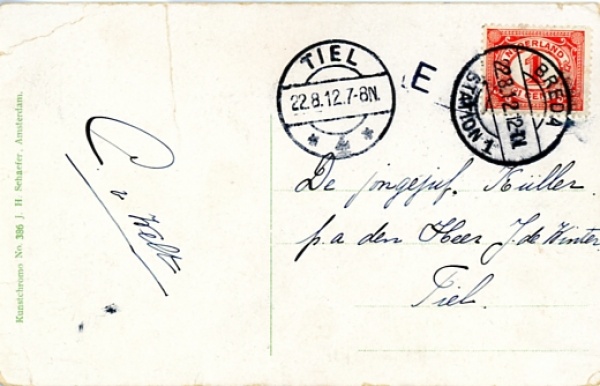 TIEL
22.8.12.7-8N.
E
NEDERLAND
1
BREDA
22.8.12.12-1N.
STATION.1
De jongejuf. Küller.
p.a den Heer J. de Winter
Tiel.
C. v Welt
Kunstchromo No. 386 J. H. Schaefer, Amsterdam.